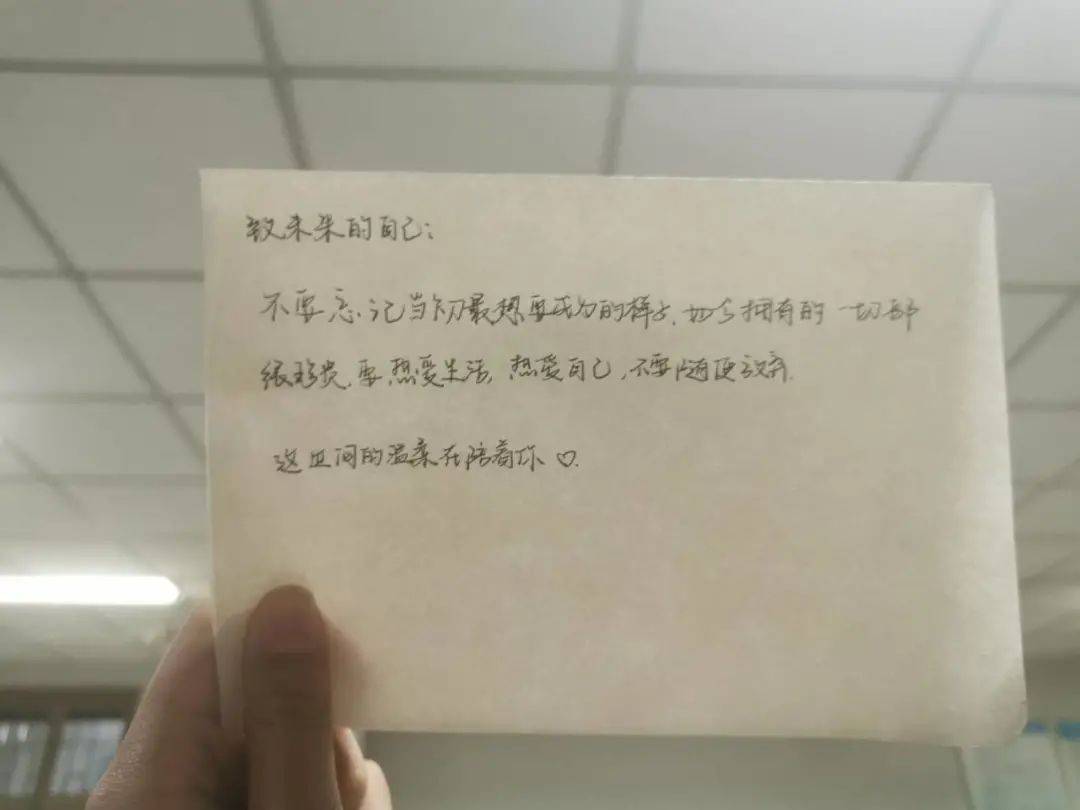 致未来的自己：
不要忘记当初最想要成为的样子，如今拥有的一切都
很珍贵，要热爱生活，热爱自己，不要随便放弃.
这世间的温柔在陪着你♡.